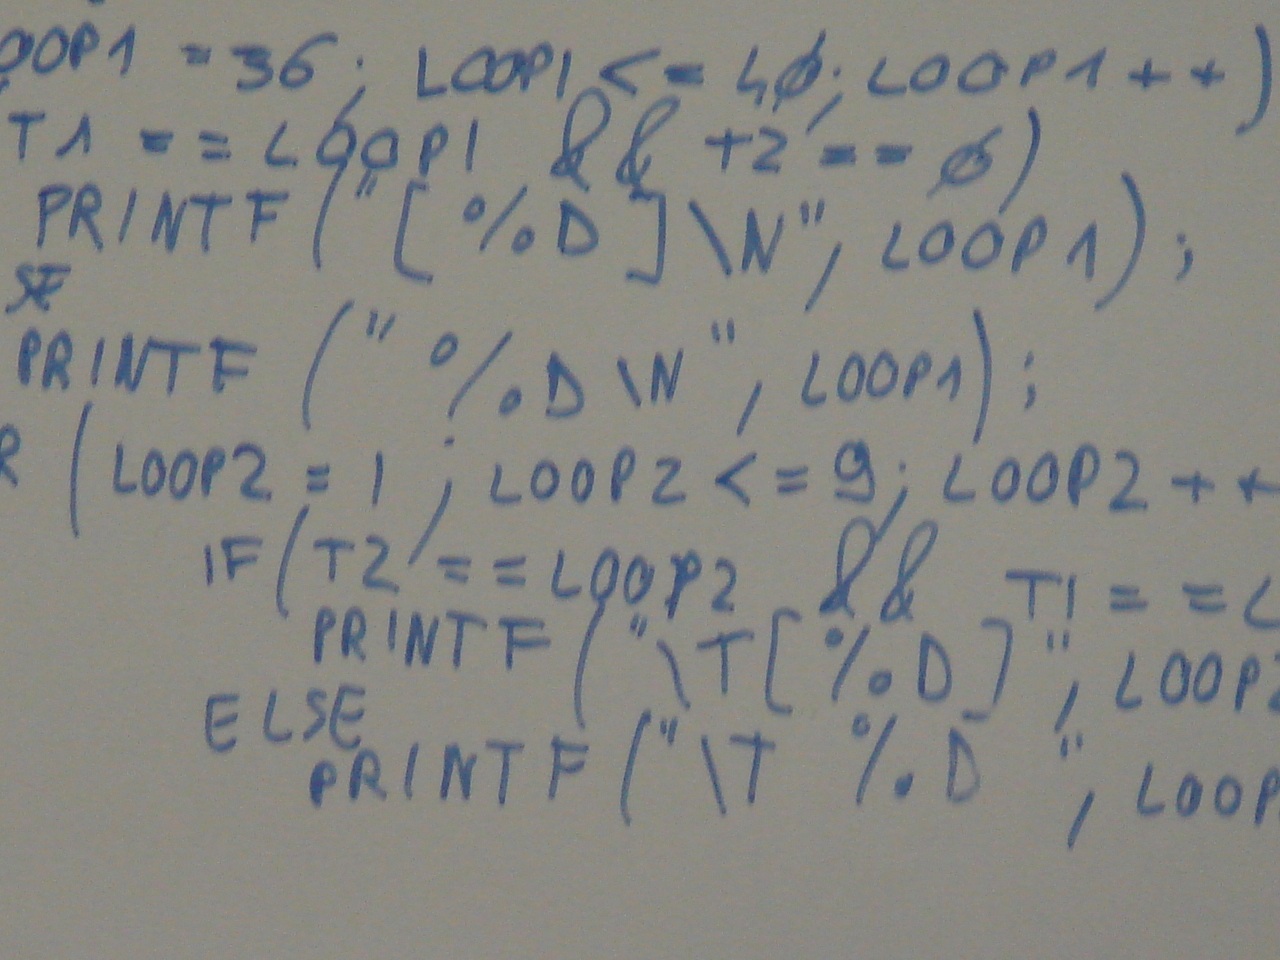 OOP1 = 36; LOOP1 <= 40; LOOP1 ++)
T1 == LOOP1 && T2 == 0)
PRINTF("[%D]\N", LOOP1);
SE
PRINTF("%D\N", LOOP1);
R (LOOP2 = 1; LOOP2 <= 9; LOOP2 ++
IF(T2 == LOOP2 && T1 == L
PRINTF("\T[%D]", LOOP2
ELSE
PRINTF("\T %D ", LOOP